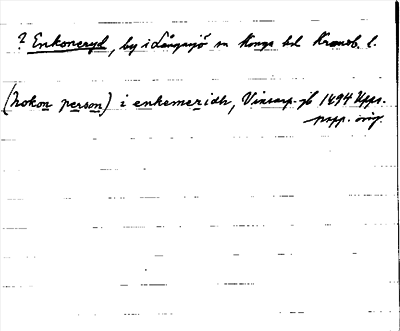 ? Enkoneryd, by i Långasjö sn Konga hd Kronob. l.
(hokon person) i enkemeridh, Vinsarp. jb 1494 Upps.
papp. orig.